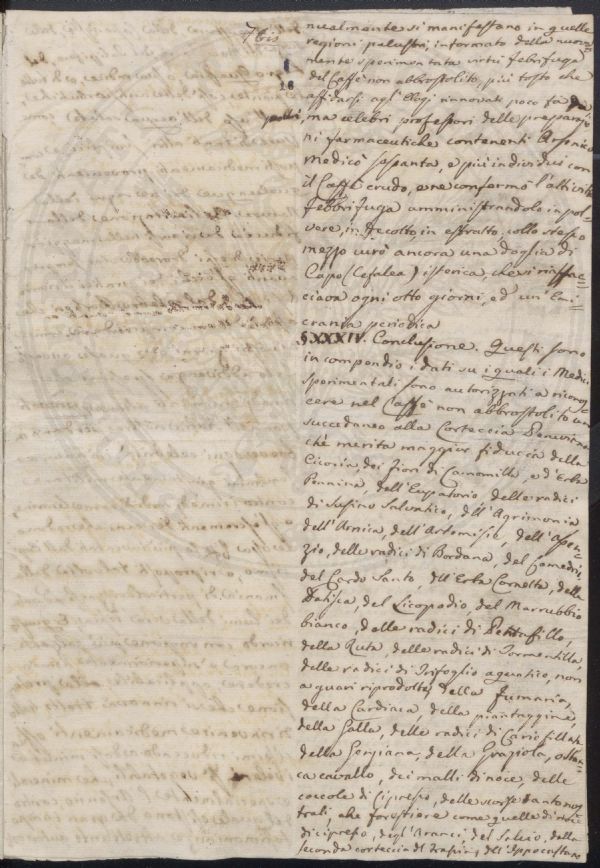 7bis
nualmente si manifestano in quelle
regioni palustri, informato della nuova-
mente sperimentata virtù febrifuga
del Caffè non abbrostolito, più tosto che
affidarsi agl' Elogi rinnovati poco fa da
molti, ma celebri professori delle preparazio
ni farmaceutiche contenenti Arsenico
medicò sessanta, e più individui con
il Caffè crudo, e ne confermò l'attività
febbrifuga amministrandolo in pol-
vere, in decotto, in estratto, collo stesso
mezzo curò ancora una doglia di
Capo (Cefalea) isterica, che si riaffac-
ciava ogni otto giorni, ed un' Emi-
crania periodica
§ XXXIV. Conclusione. Questi sono
in compendio i dati su i quali i Medici
sperimentali sono autorizzati a ricono-
scere nel Caffè non abbrostolito un
succedaneo alla Corteccia Peruviana
che merita maggior fiducia della
Cicoria, dei Fiori di Camomilla, e d'Erba
Pannina, dell'Eupatorio, delle radici
di Susino Salvatico, dell'Agrimonia
dell'Arnica, dell'Artemisia, dell'Assen-
zio, delle radici di Bardana, del Camedrio,
del Cardo Santo, dell'Erba Cornetta, della
Datisca, del Licopodio, del Marrubbio
bianco, delle radici di Pentafillo,
della Ruta, delle radici di Tormentilla,
delle radici di Trifoglio aquatico, non
a guari riprodotte, della fumaria,
della Cardiaca, della piantaggine,
della Galla, delle radici di Cariofillata
della Genziana, della Graziola,
ca cavallo, dei malli di noce, delle
coccole di Cipresso, delle scorze
trali, che forestiere come quelle di noce
di cipresso, degl'Aranci, del Salcio, della
seconda corteccia di Frassino, dell'Ippocastano